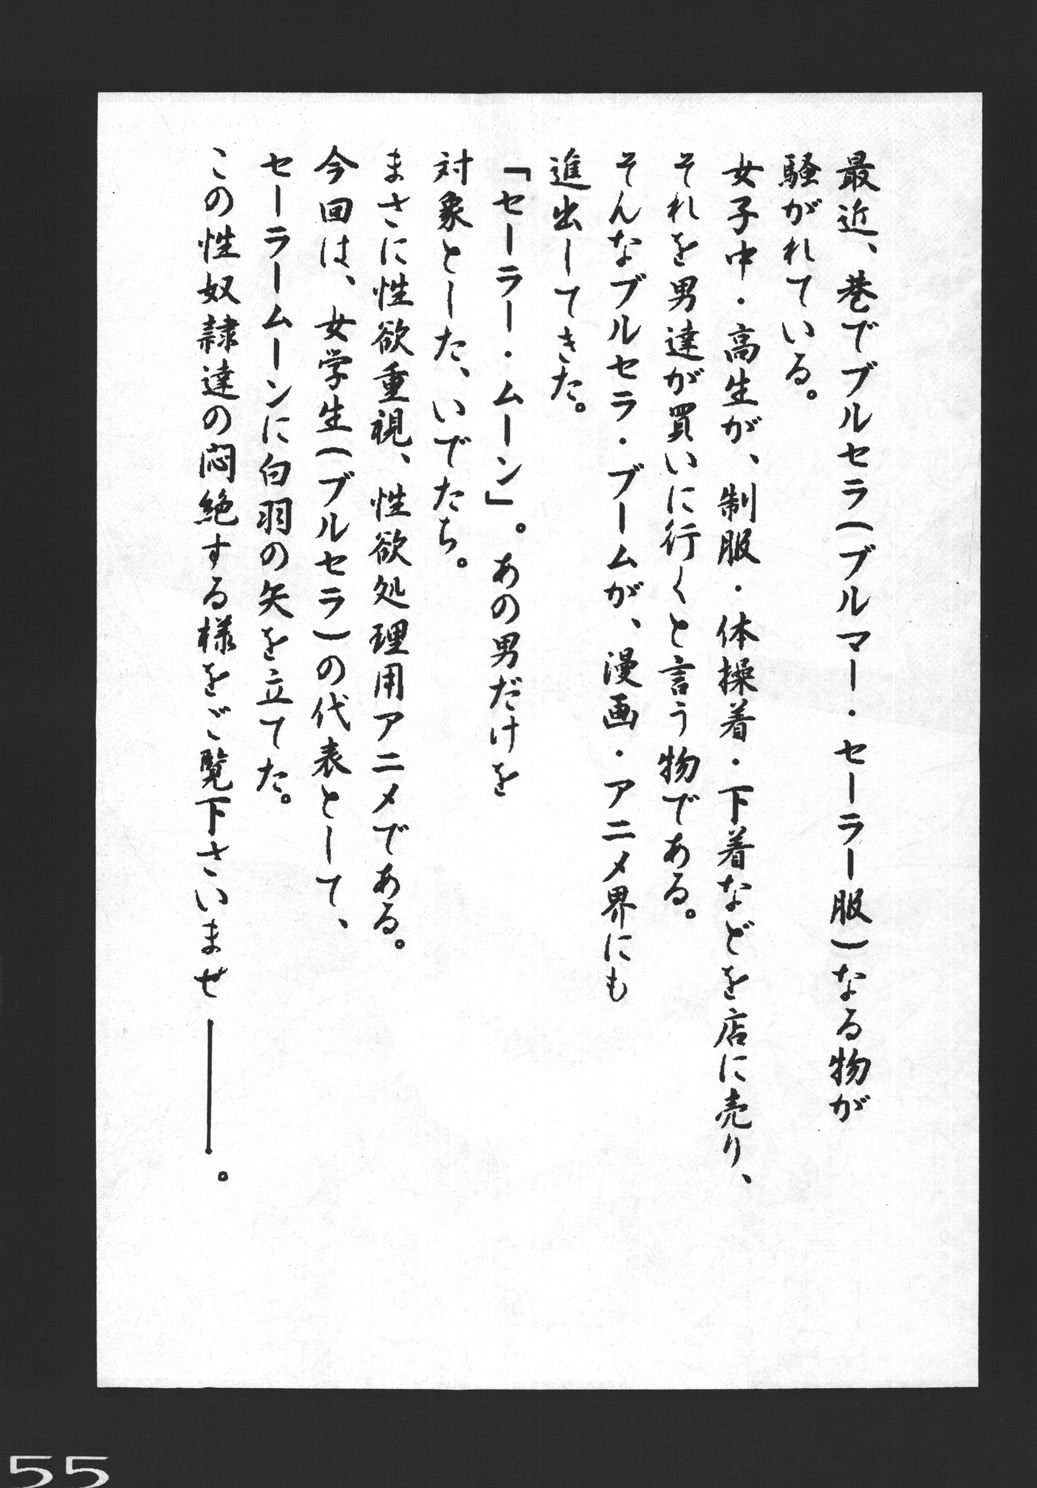 最近、巷でブルセラ(ブルマー・セーラー服)なる物が
騒がれている。
女子中・高生が、制服・体操着・下着などを店に売り、
それを男達が買いに行くと言う物である。
そんなブルセラ・ブームが、漫画・アニメ界にも
進出してきた。
「セーラー・ムーン」。あの男だけを
対象とした、いでたち。
まさに性欲重視、性欲処理用アニメである。
今回は、女学生(ブルセラ)の代表として、
セーラームーンに白羽の矢を立てた。
この性奴隷達の悶絶する様をご覧下さいませ――。
55